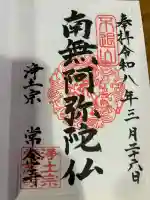 奉拝 令和八年三月二十六日
南無阿弥陀仏
浄土宗 常念寺
浄土宗